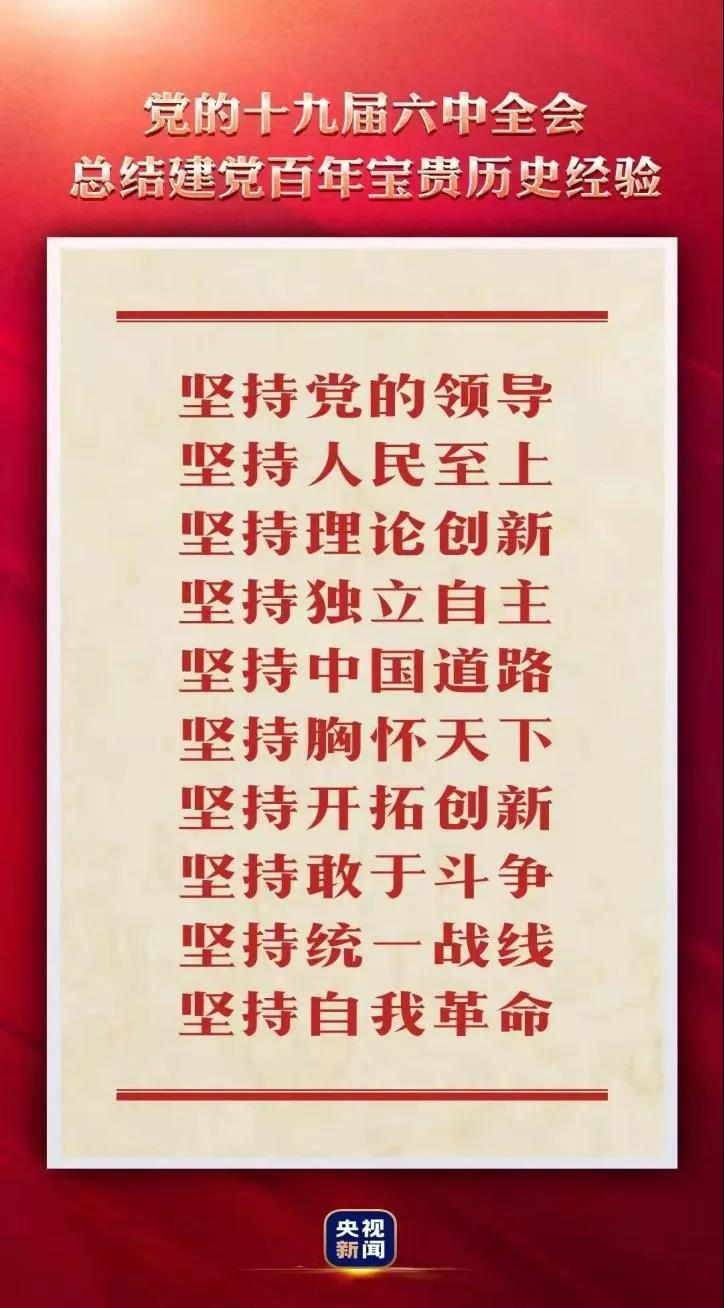 党的十九届六中全会
总结建党百年宝贵历史经验
坚持党的领导
坚持人民至上
坚持理论创新
坚持独立自主
坚持中国道路
坚持胸怀天下
坚持开拓创新
坚持敢于斗争
坚持统一战线
坚持自我革命
央视
新闻